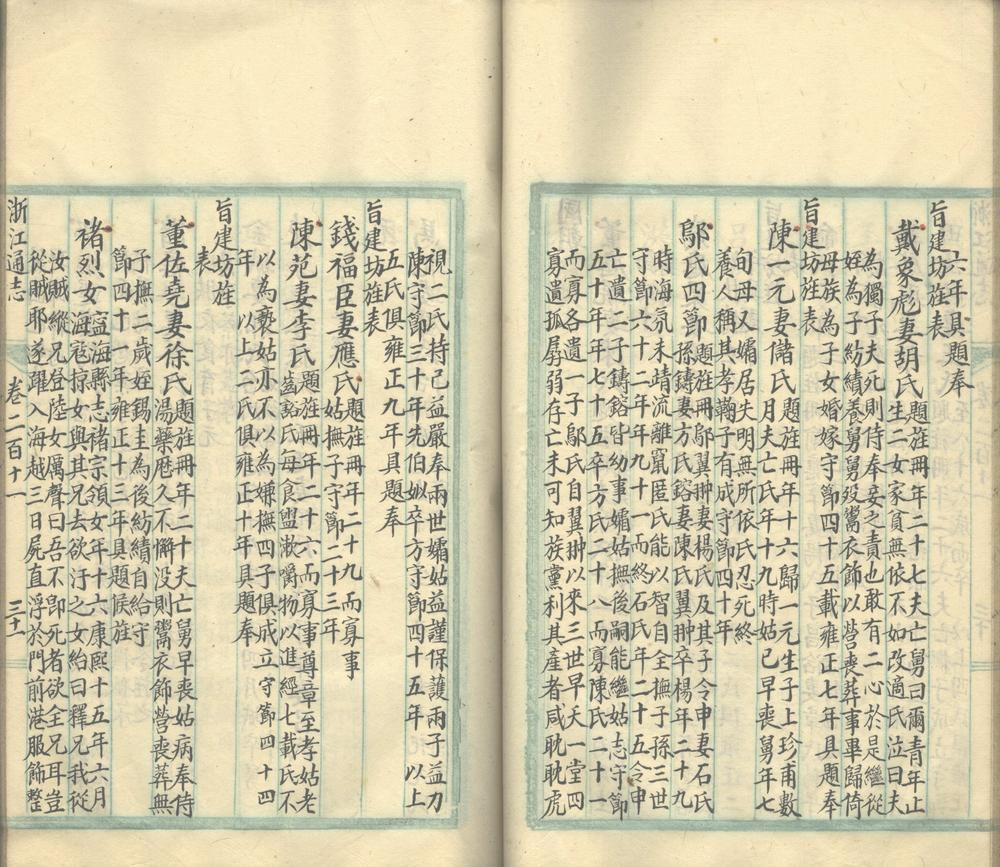 六年具題奉
旨建坊旌表
戴象彪妻胡氏題旌冊年二十七夫亡舅曰爾青年止
生二女家貧無依不如改適氏泣曰夫
為獨子夫死則侍奉妾之責也敢有二心於是繼從
姪為子紡績養舅舅歿鬻衣飾以營喪葬事畢歸倚
母族為子女婚嫁守節四十五載雍正七年具題奉
旨建坊旌表
陳一元妻儲氏題旌冊年十六歸一元生子上珍甫數
月夫亡氏年十九時姑已早喪舅年七
旬母又孀居失明無所依氏忍死終
養人稱其孝鞠子有成守節四十年
鄔氏四節題旌冊鄔翼翀妻楊氏及其子令申妻石氏
孫鑄妻方氏鎔妻陳氏翼翀卒楊年二十九
時海氛未靖流離竄匿氏能以智自全撫子孫三世
守節六十二年年九十一而終石氏年二十五令申
亡遺二子鑄鎔皆幼事孀姑撫後嗣能繼姑志守節
五十年年七十五卒方氏二十八而寡陳氏二十一
而寡各遺一子鄔氏自翼翀以來三世早夭一堂四
寡遺孤孱弱存亡未可知族黨利其產者咸耽耽虎
視二氏持己益嚴奉兩世孀姑益謹保護兩子益力
陳守節三十年先伯姒卒方守節四十五年 以上
五氏俱雍正九年具題奉
旨建坊旌表
錢福臣妻應氏題旌冊年二十九而寡事
姑撫子守節二十三年
陳苑妻李氏題旌冊年二十六而寡事尊章至孝姑老
齒豁氏每食盥漱嚼物以進經七載氏不
以為褻姑亦不以為嫌撫四子俱成立守節四十四
年 以上二氏俱雍正十年具題奉
旨建坊旌
表
董佐堯妻徐氏題旌冊年二十夫亡舅早喪姑病奉侍
湯藥歷久不懈没則鬻衣飾營喪葬無
子撫二歲姪錫圭為後紡績自給守
節四十一年雍正十三年具題候旌
褚烈女寧海縣志褚宗領女年十六康熙十五年六月
海寇掠女與其兄去欲汙之女紿曰釋兄我從
汝賊縱兄登陸女厲聲曰吾不即死者欲全兄耳豈
從賊耶遂躍入海越三日屍直浮於門前港服飾整
浙江通志 卷二百十一 三十一